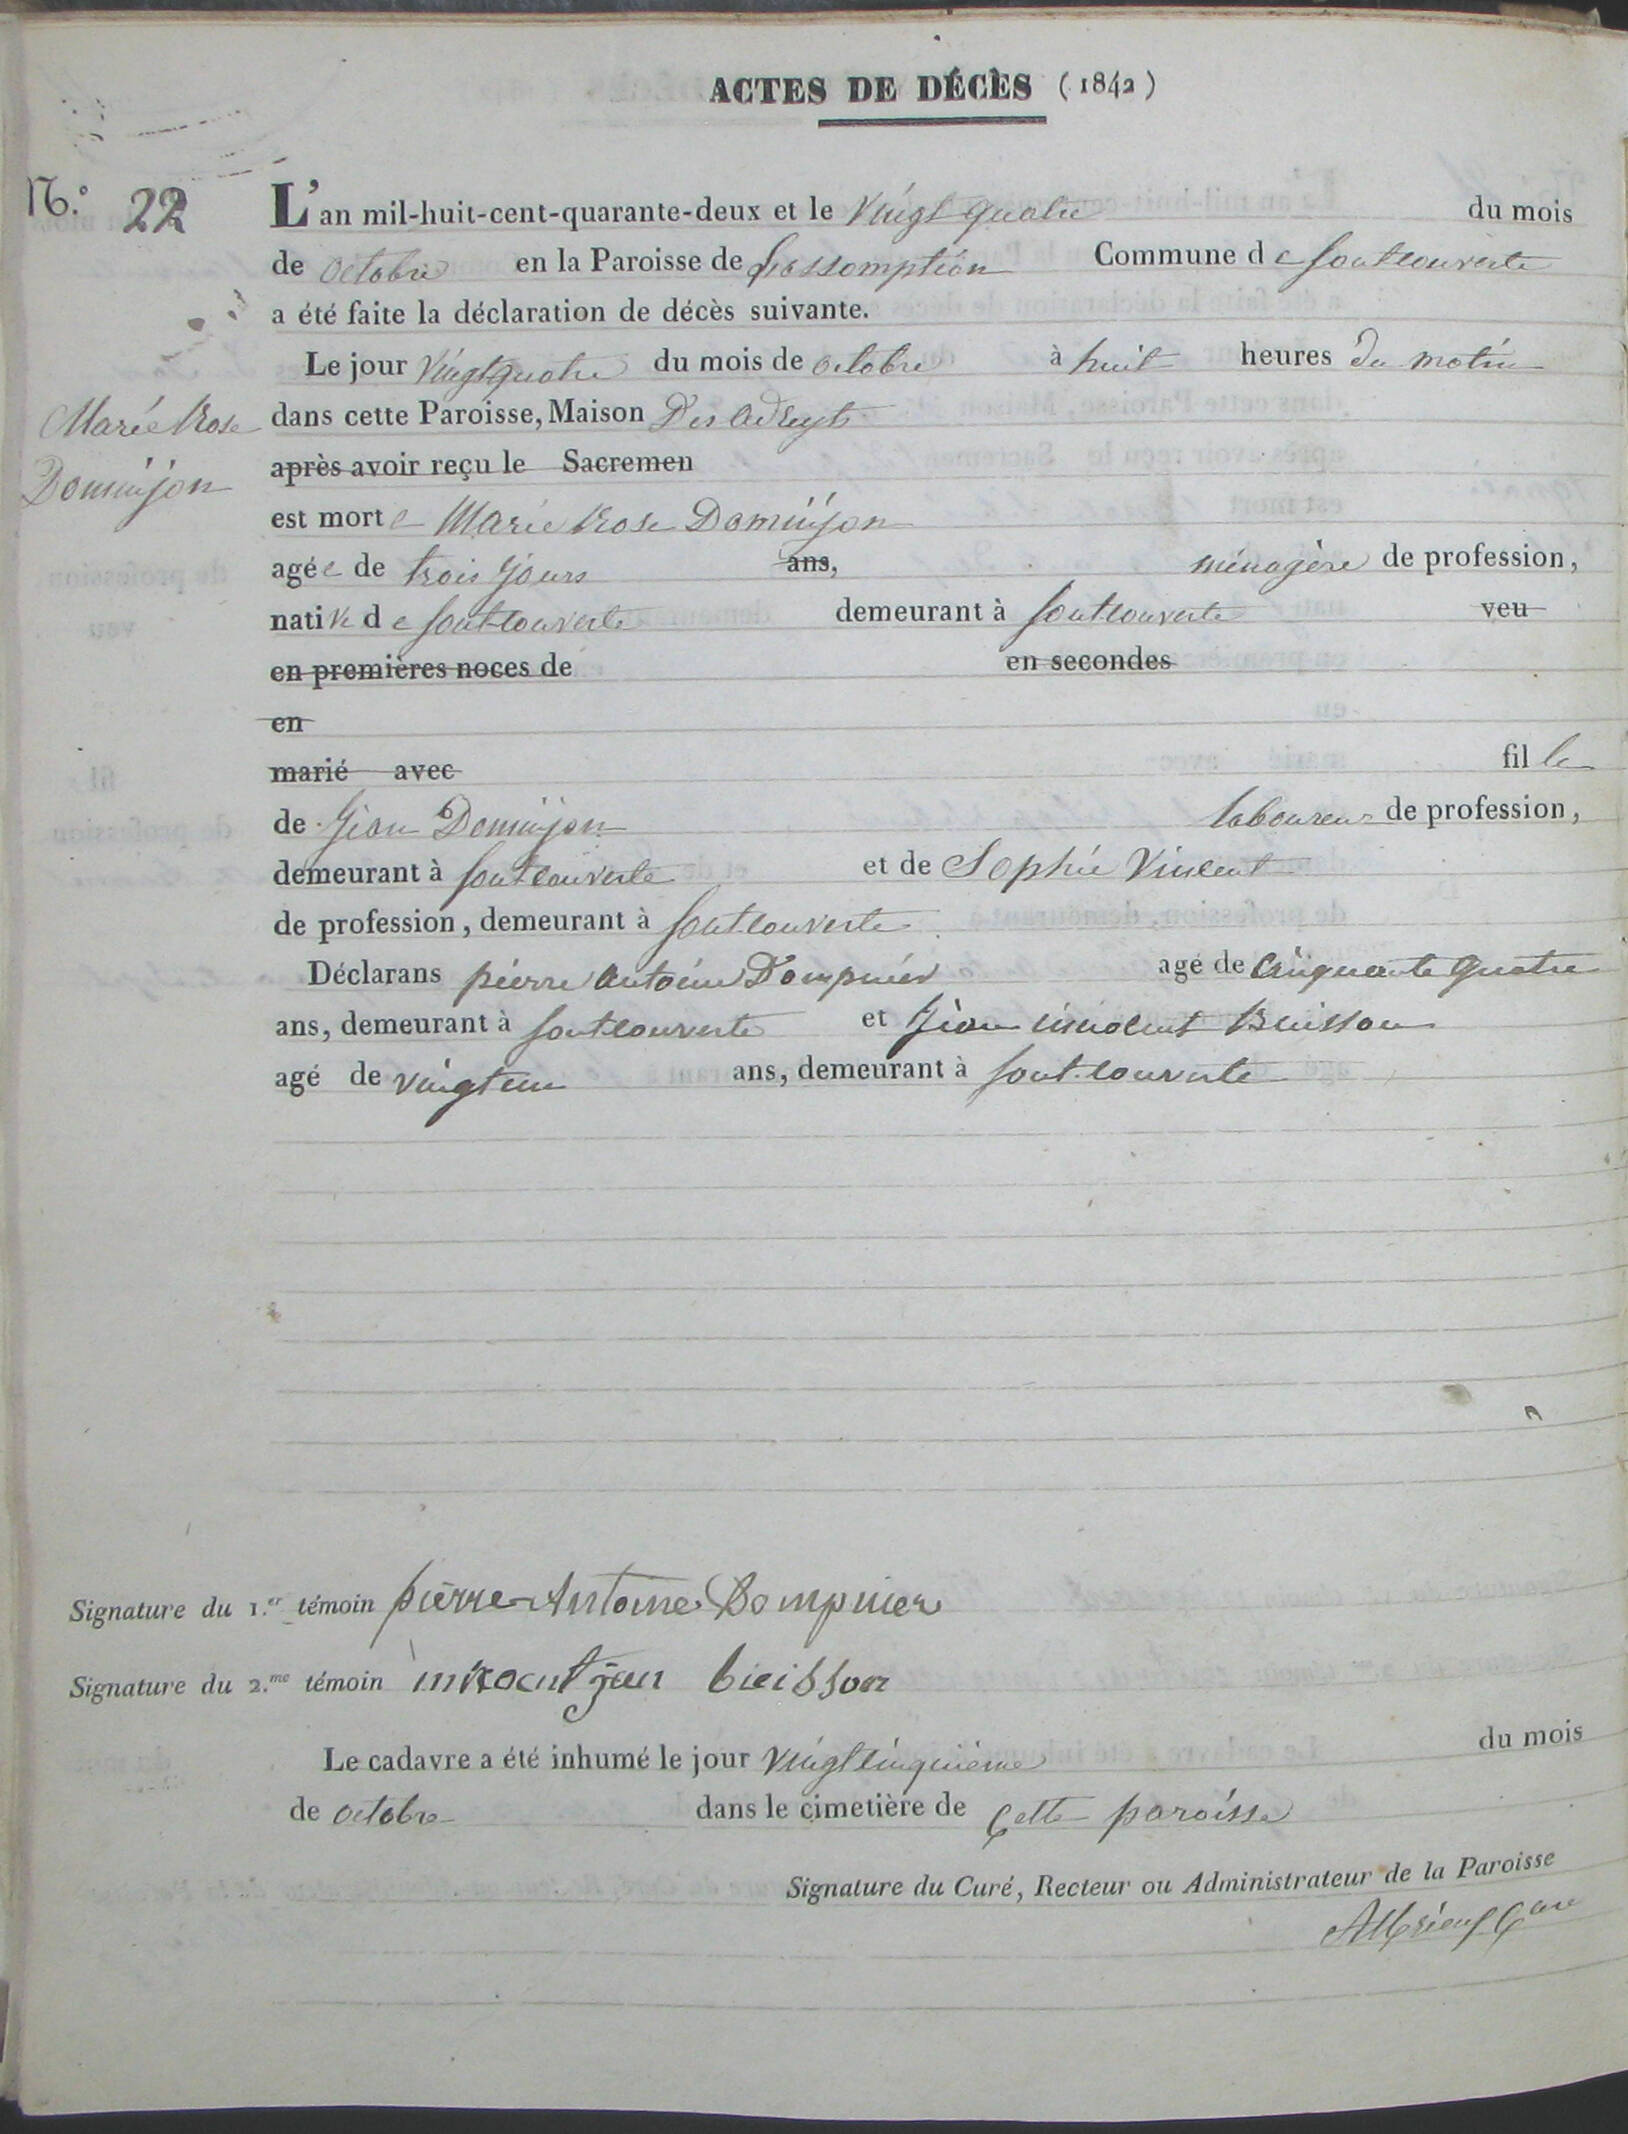 ACTES DE DÉCÈS (1842)
N.º 22
L'an mil-huit-cent-quarante-deux et le vingt quatre du mois
de octobre en la Paroisse de Lassomption Commune de fontcouverte
a été faite la déclaration de décès suivante.
Le jour vingtquatre du mois de octobre à huit heures du matin
Marie Rose
dans cette Paroisse, Maison Des adreyts
Dominjon
après avoir reçu le Sacremen
est morte Marie Rose Dominjon
agée de trois jours ans, ménagère de profession,
native de fontcouverte demeurant à fontcouverte veu
en premières noces de en secondes
en
marié avec fille
de Jean Dominjon laboureur de profession,
demeurant à fontcouverte et de Sophie Vincent
de profession, demeurant à fontcouverte
Déclarans pierre antoine Dompnier agé de cinquante quatre
ans, demeurant à fontcouverte et Jean innocent Buisson
agé de vingt un ans, demeurant à fontcouverte
Signature du 1.er témoin pierre-Antoine Dompnier
Signature du 2.me témoin innocent jean buisson
Le cadavre a été inhumé le jour vingt cinquième du mois
de octobre dans le cimetière de cette paroisse
Signature du Curé, Recteur ou Administrateur de la Paroisse